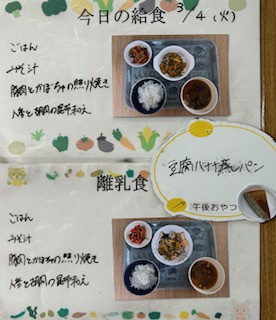 今日の給食 3/4(火)
ごはん
みそ汁
豚肉とかぼちゃの照り焼き
人参と胡瓜の昆布和え
豆腐バナナ蒸しパン
午後おやつ
離乳食
ごはん
みそ汁
豚肉とかぼちゃの照り焼き
人参と胡瓜の昆布和え